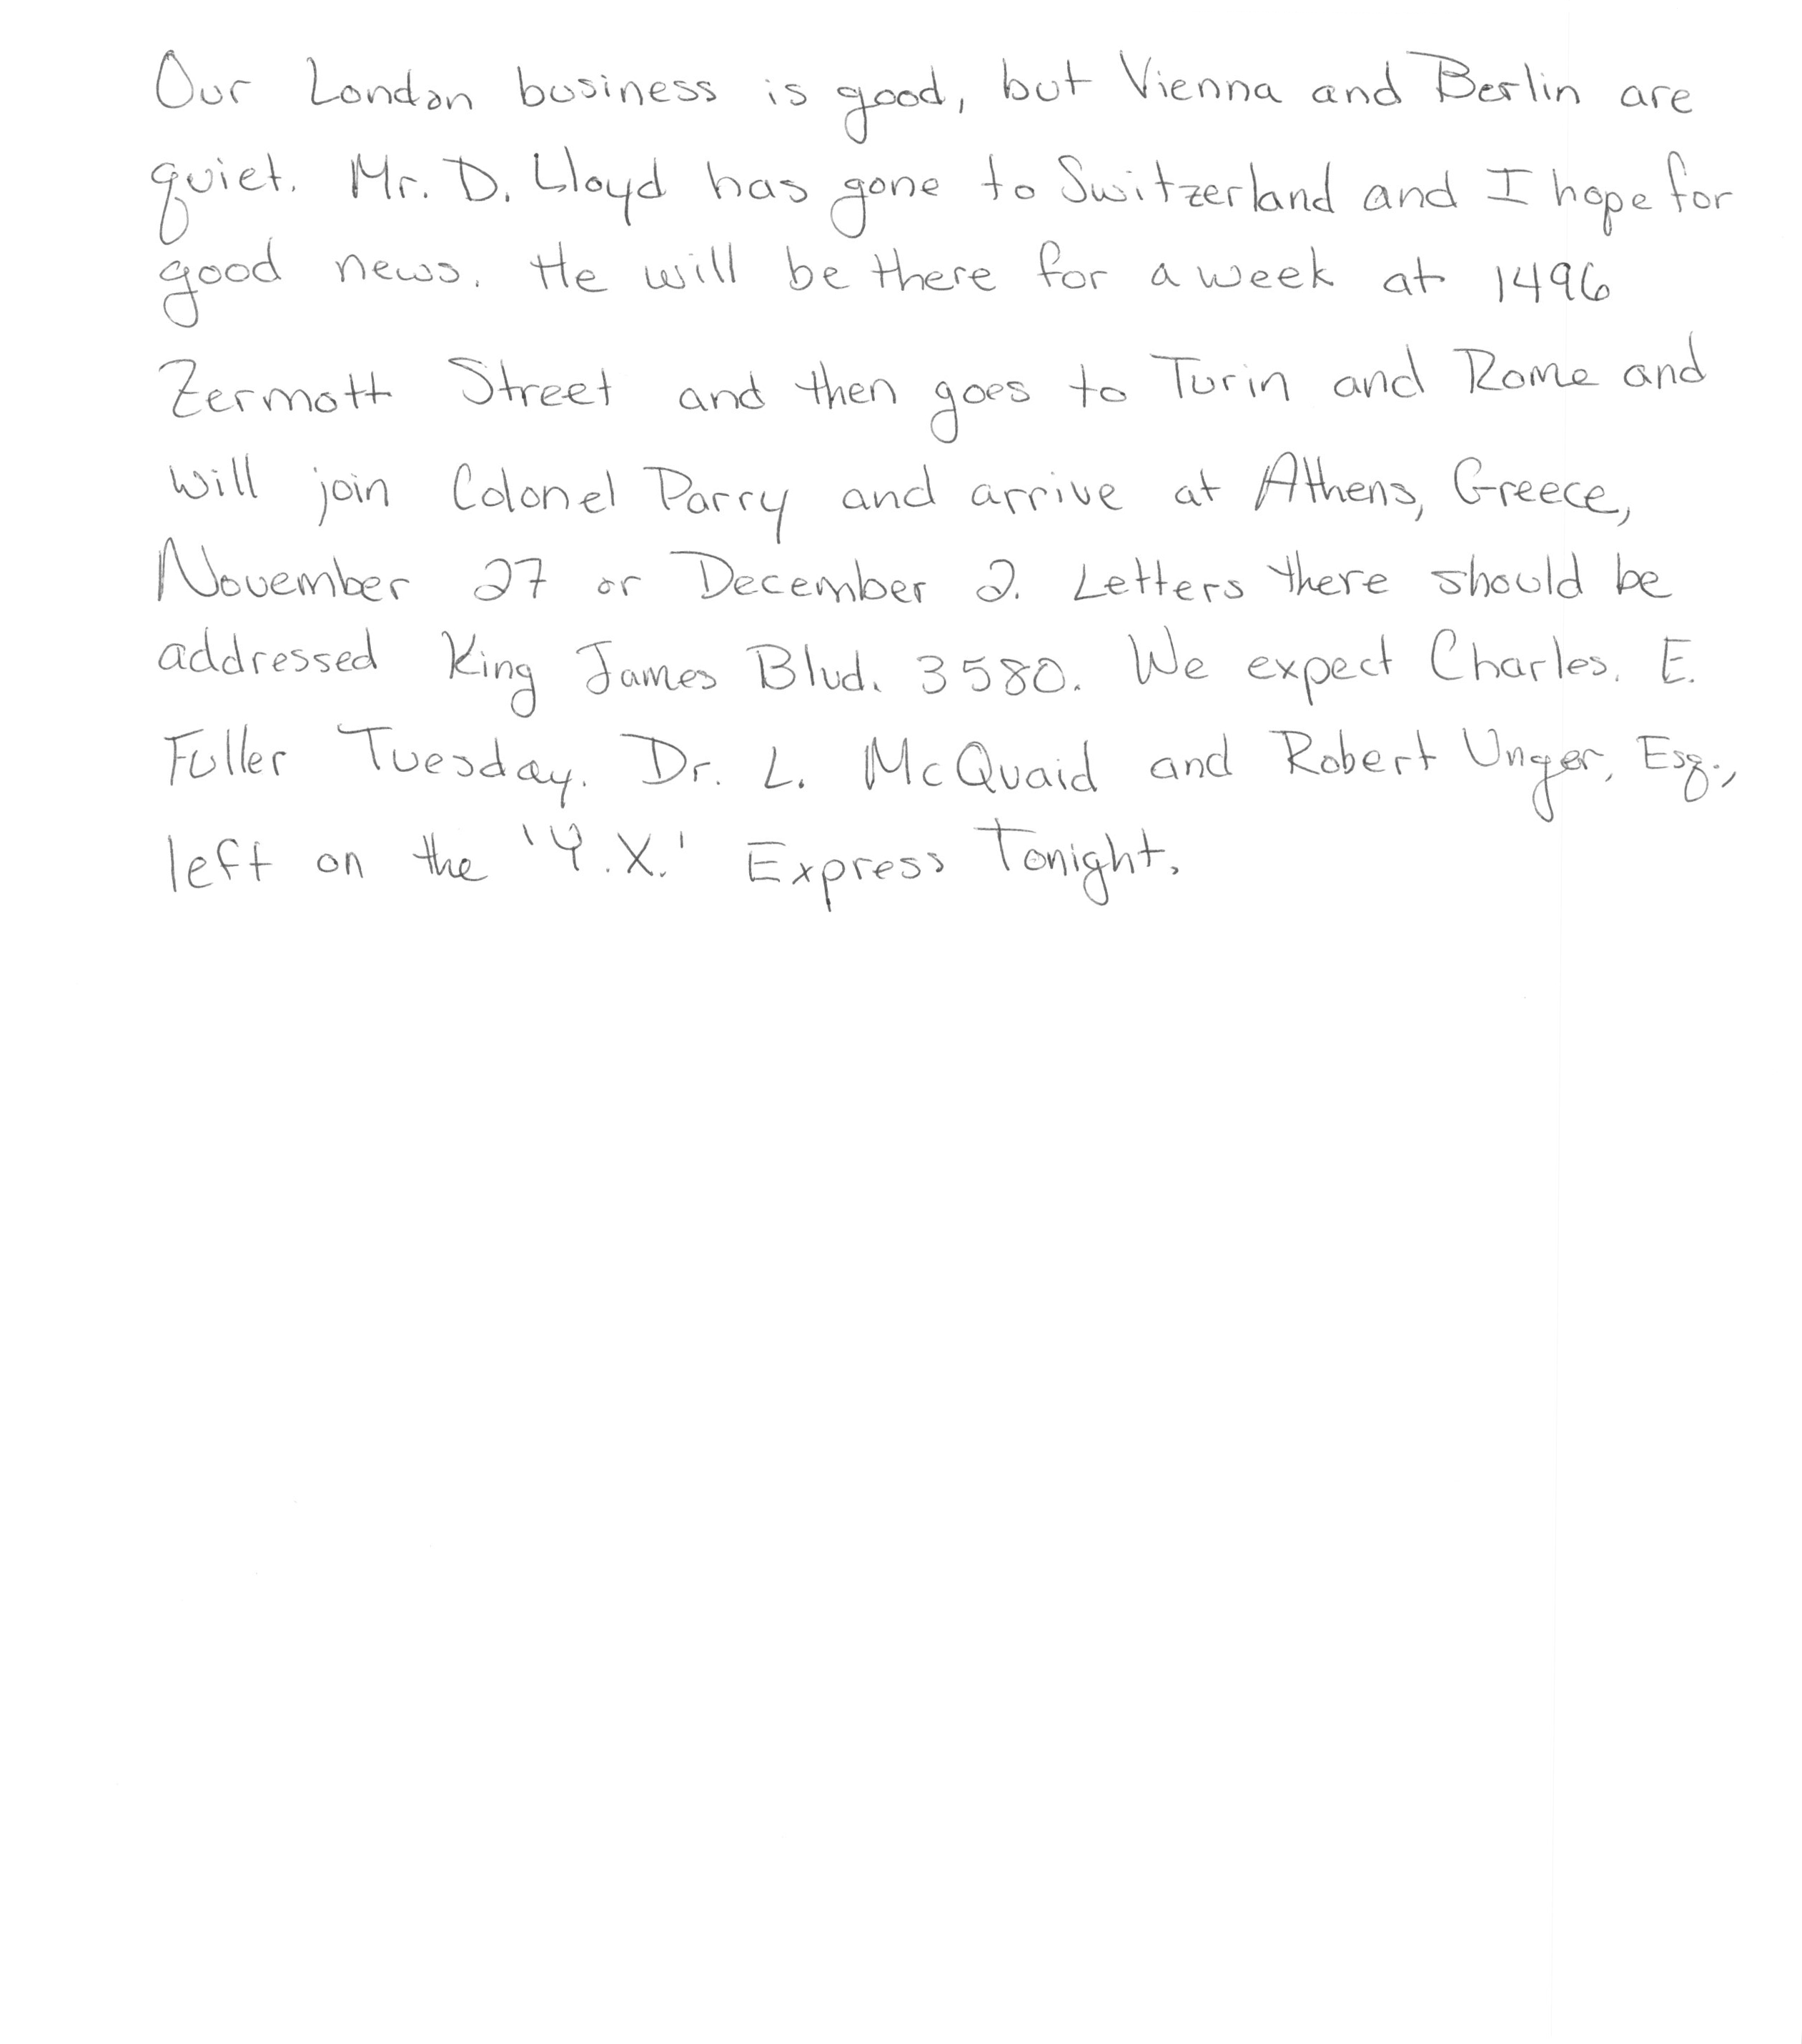 Our London business is good, but Vienna and Berlin are
quiet. Mr. D. Lloyd has gone to Switzerland and I hope for
good news. He will be there for a week at 1496
Zermott Street and then goes to Turin and Rome and
will join Colonel Parry and arrive at Athens, Greece,
November 27 or December 2. Letters there should be
addressed King James Blvd. 3580. We expect Charles. E.
Fuller Tuesday. Dr. L. McQuaid and Robert Unger, Esq.,
left on the 'Y.X.' Express Tonight.